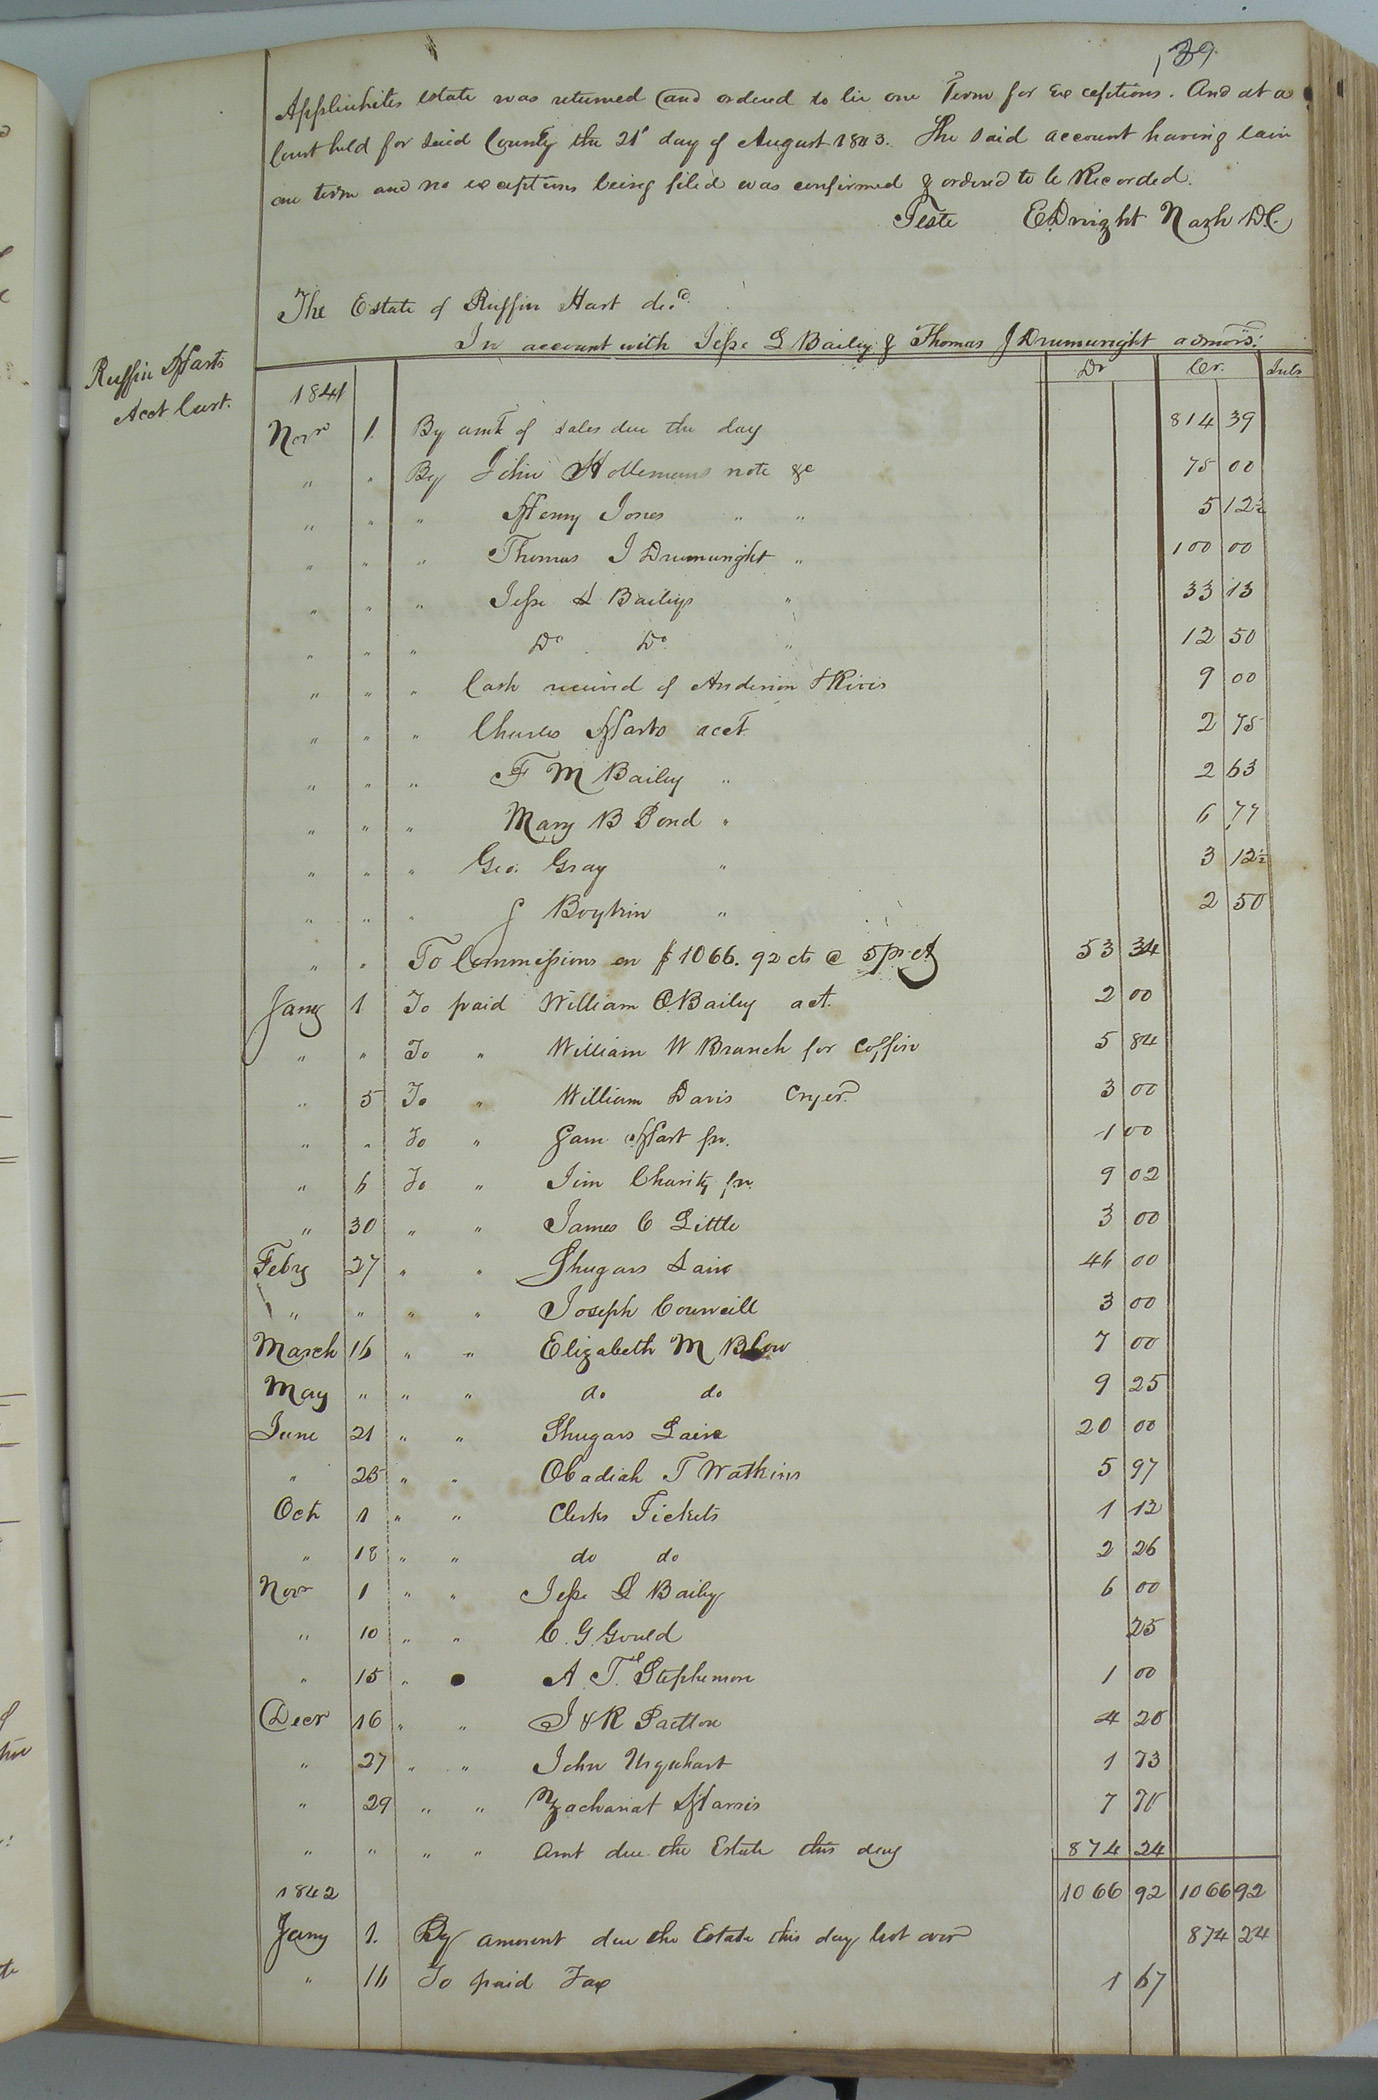 139
Applewhites estate was returned and ordered to lie one Term for exceptions. And at a
Court held for said County the 21st day of August 1843. The said account having lain
one term and no exceptions being filed was confirmed & ordered to be Recorded.
Teste Nash D.C.
The Estate of Ruffin Hart decd.
In account with Jesse L Bailey & Thomas J Drumwright admors:
Ruffin Harts
Acct Curt.
Dr Cr. Ints
1841
Novr 1. By amt of sales due this day 814 39
" " By John Hollemans note &c 75 00
" " " Henry Jones " " 5 12½
" " " Thomas J Drumwright " 100 00
" " " Jesse L Baileys " 33 13
" " " Do Do " 12 50
" " " Cash received of Anderson 9 00
" " " Charles Harts acct 2 75
" " " F M Bailey " 2 63
" " " Mary B Pond " 6 77
" " " Geo. Gray " 3 12½
" " " J Boykin " 2 50
" " To Commissions on $1066.92 cts @ 5 pr ct 53 34
Jany 1 To paid William O. Bailey act. 2 00
" " To " William W Branch for coffin 5 84
" 5 To " William Davis Cryer 3 00
" " To " Hart 1 00
" 6 To " Jim Charity 9 02
" 30 " " James C Little 3 00
Feby 27 " " Shugars Lain 46 00
" " " " Joseph Councill 3 00
March 16 " " Elizabeth M Blow 7 00
May " " " do do 9 25
June 21 " " Shugars Lain 20 00
" 25 " " Obadiah T Watkins 5 97
Oct 1 " " Clerks Tickets 1 12
" 18 " " do do 2 26
Novr 1 " " Jesse L Bailey 6 00
" 10 " " C. G. Gould 25
" 15 " A. T. Stephenson 1 00
Decr 16 " " J & R 4 20
" 27 " " John Urquhart 1 73
" 29 " " Zachariat Harris 7 70
" " " " Amt due the Estate this day 874 24
1842 1066 92 1066 92
Jany 1. By amount due the Estate this day brot over 874 24
" 16 To paid Tax 1 67